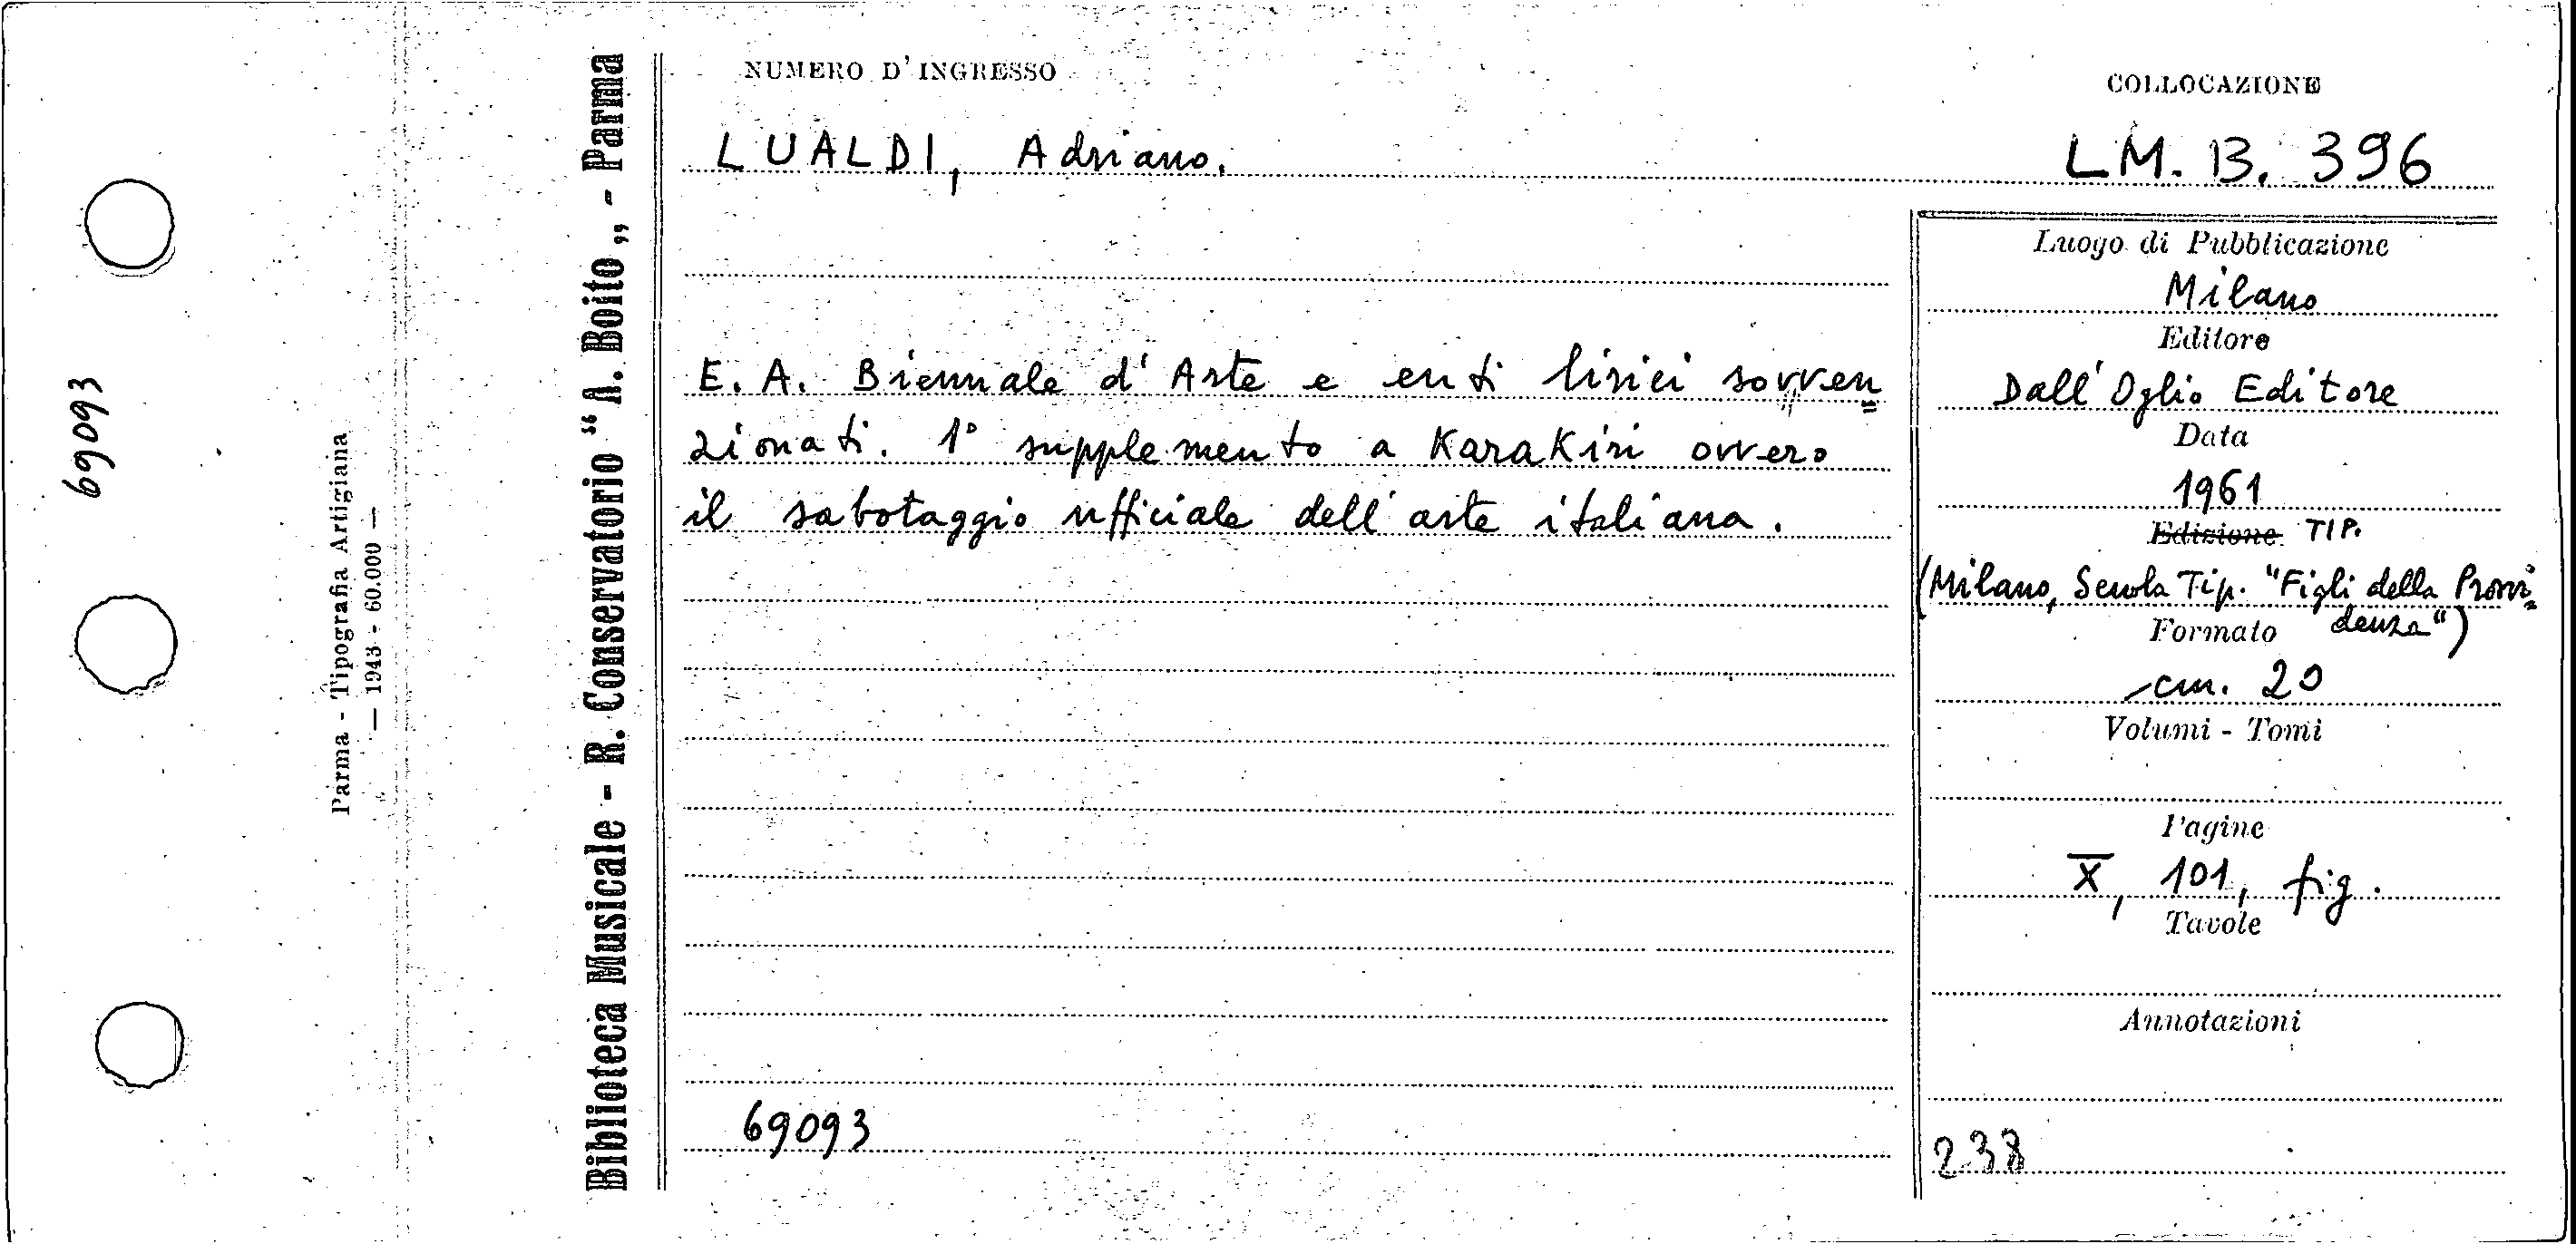 69093
Parma - Tipografia Artigiana
— 1943 - 60.000 —
Biblioteca Musicale - R. Conservatorio "A. Boito„ - Parma
NUMERO D'INGRESSO
COLLOCAZIONE
LUALDI, Adriano.
LM. B. 396
E. A. Biennale d'Arte e enti lirici sovven=
zionati. 1° supplemento a KaraKiri ovvero
il sabotaggio ufficiale dell'arte italiana.
69093
Luogo di Pubblicazione
Milano
Editore
Dall'Oglio Editore
Data
1961
Edizione TIP.
(Milano, Scuola Tip. "Figli della Provvi=
denza")
Formato
cm. 20
Volumi - Tomi
Pagine
X, 101, fig.
Tavole
Annotazioni
238